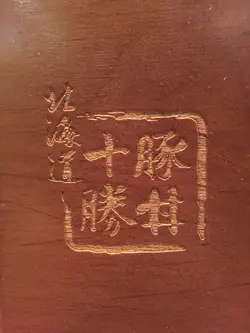 北海道
十勝
豚丼